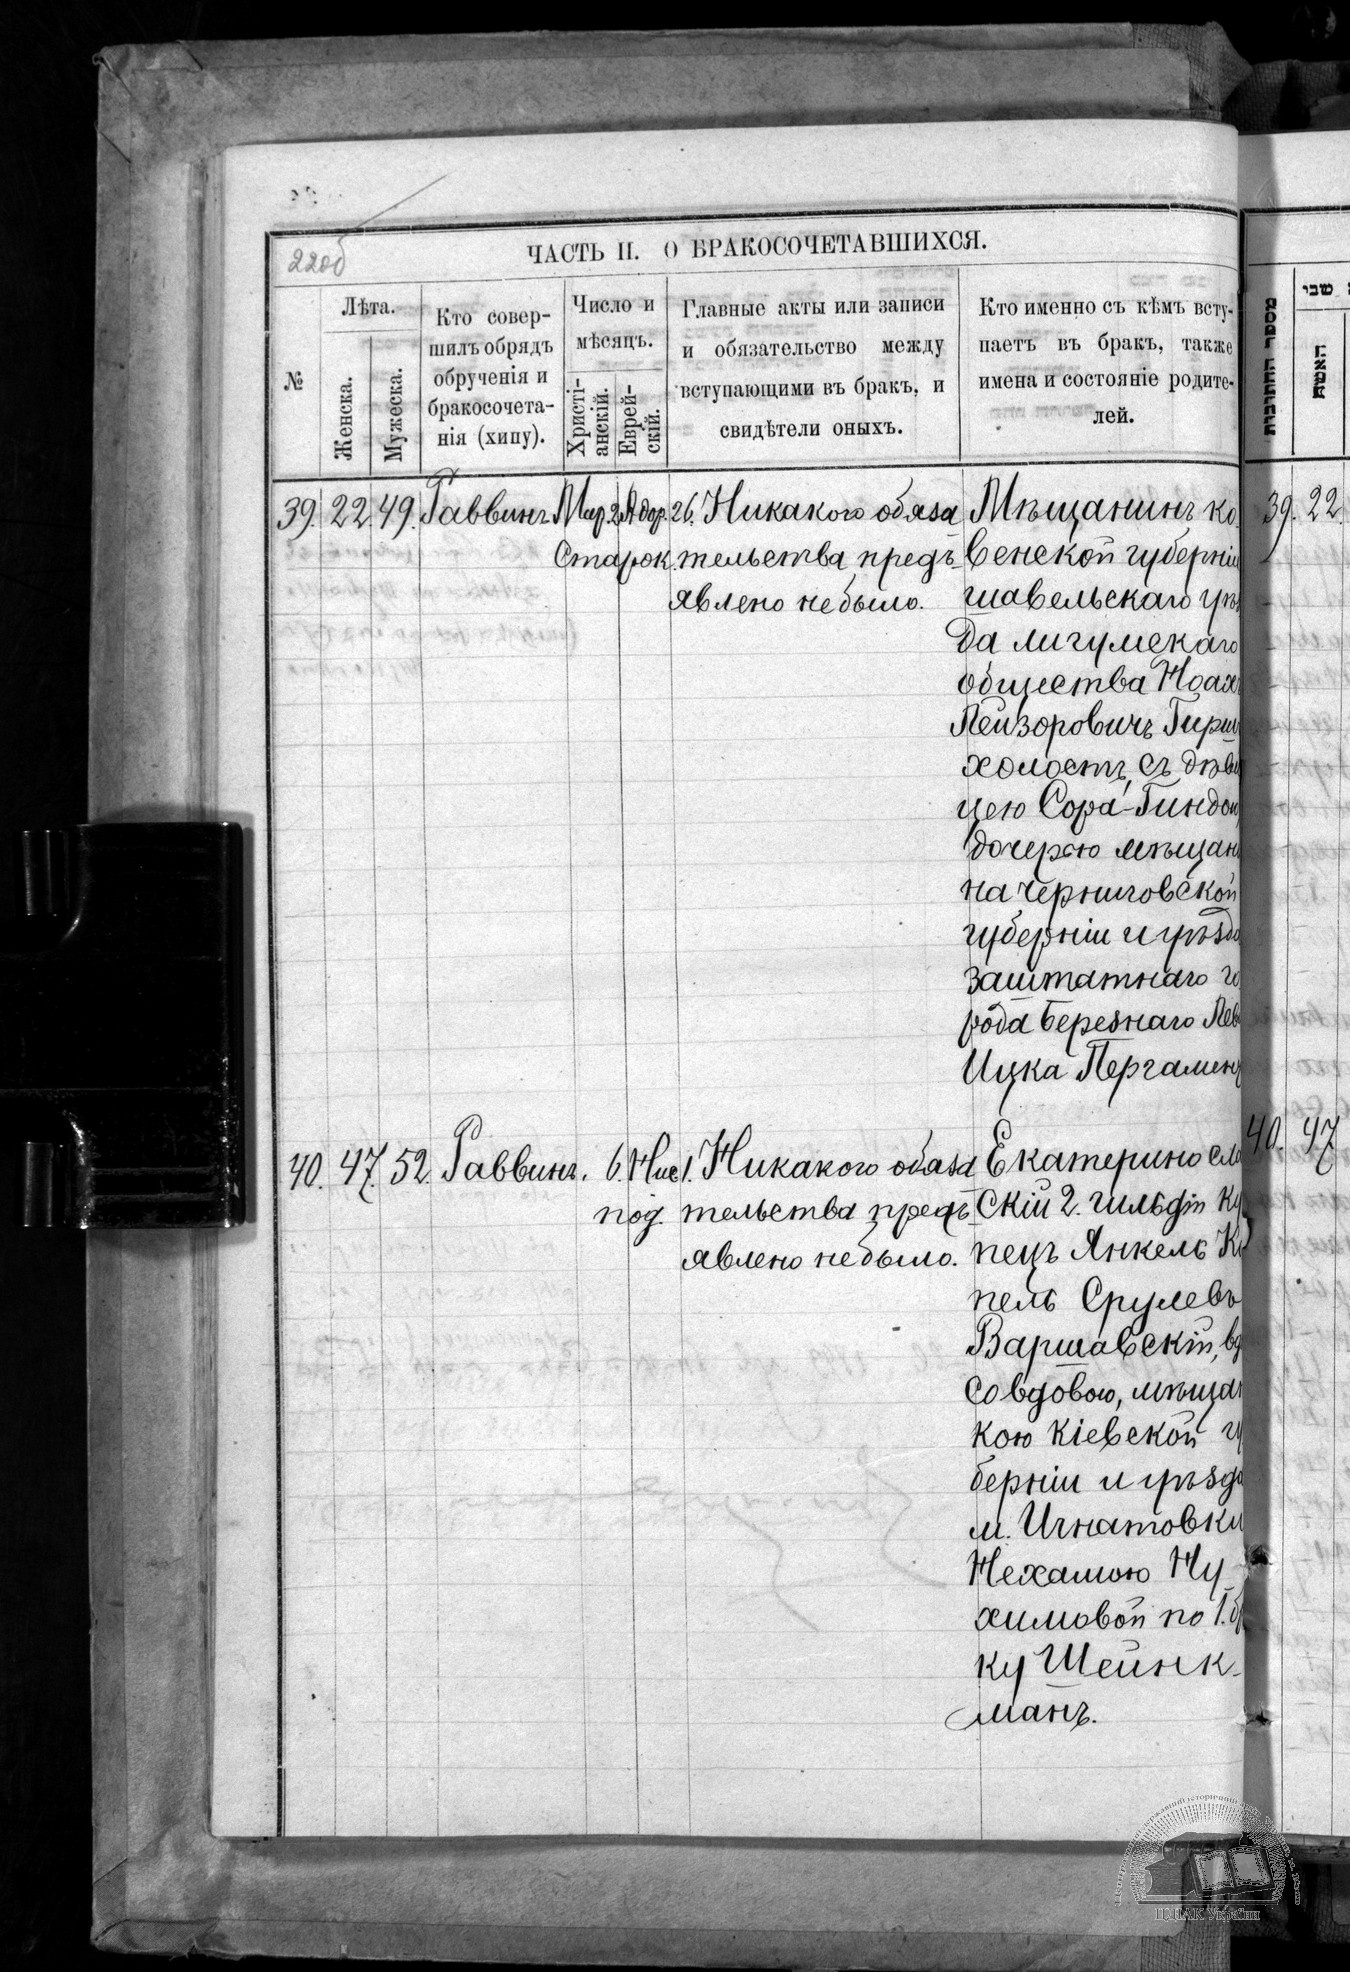 220б
ЧАСТЬ II. О БРАКОСОЧЕТАВШИХСЯ.
№
Лѣта.
Женска.
Мужеска.
Кто совер-
шилъ обрядъ
обрученія и
бракосочета-
нія (хипу).
Число и
мѣсяцъ.
Христі-
анскій.
Еврей-
скій.
Главные акты или записи
и обязательство между
вступающими въ бракъ, и
свидѣтели оныхъ.
Кто именно съ кѣмъ всту-
паетъ въ бракъ, также
имена и состояніе родите-
лей.
39. 22. 49. Раввинъ Мар. 2 Адор. 26.
Старок.
Никакого обяза
тельства предъ-
явлено не было.
Мѣщанинъ ко
венской губерніи
шавельскаго уѣз
да лигумскаго
общества Ноахъ
Лейзоровичъ Гирш
холостъ, съ дѣви
цею Сора-Гиндою
дочерью мѣщани
на черниговской
губерніи и уѣзда
заштатнаго го
рода Березнаго Лев
Ицка Пергамен
40. 47. 52. Раввинъ. 6. Нис. 1.
под.
Никакого обяза
тельства предъ-
явлено не было.
Екатеринос ла
скій 2. гильдіи ку
пецъ Янкель Ко
пель Срулевъ
Варшавскій, вд
со вдовою, мѣщан
кою кіевской гу
берніи и уѣзда
м. Игнатовки
Нехамою Ну-
химовой по 1. бр
ку Шейнк-
манъ.
מספר החתונות
שני
האשה
39. 22.
40. 47
ЦДІАК України